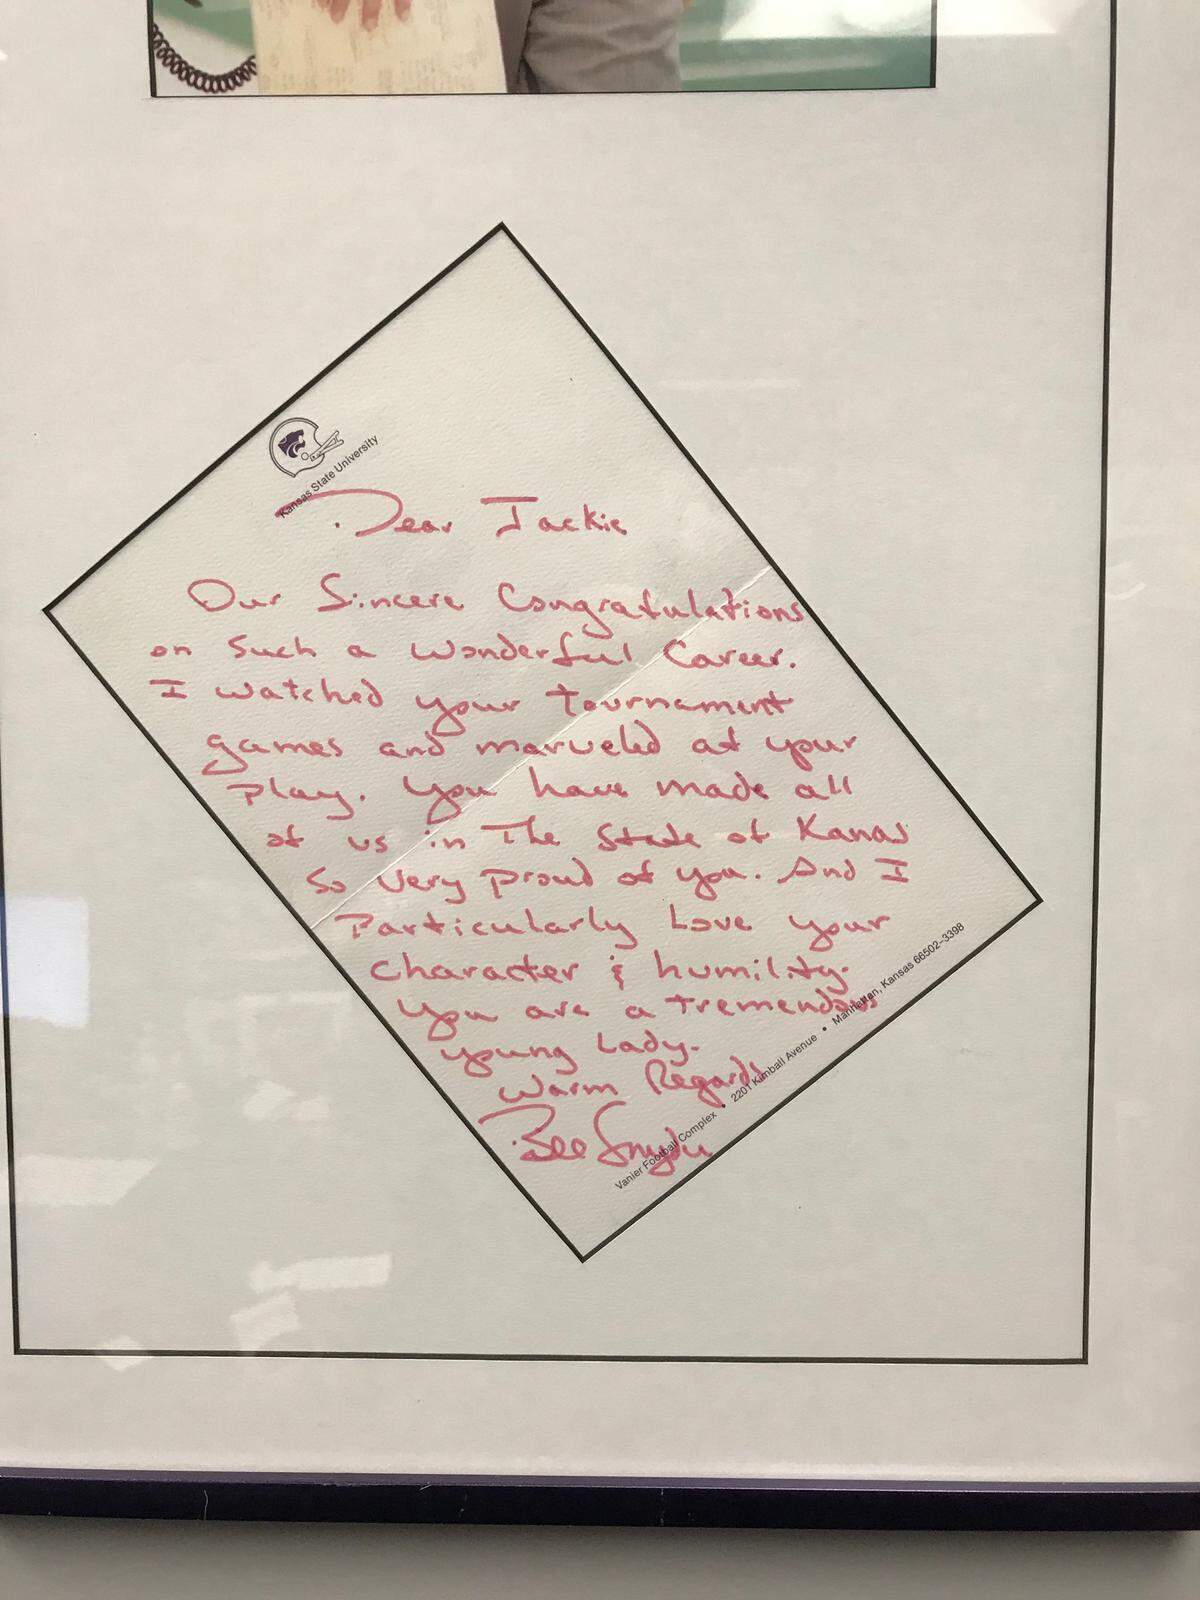 Kansas State University
Dear Jackie
Our Sincere Congratulations
on Such a Wonderful Career.
I watched your tournament
games and marveled at your
play. You have made all
of us in The State of Kanas
So Very proud of you. And I
Particularly Love your
character & humility.
You are a tremendous
young Lady.
Warm Regards
Bill Snyder
Vanier Football Complex • 2201 Kimball Avenue • Manhattan, Kansas 66502-3398